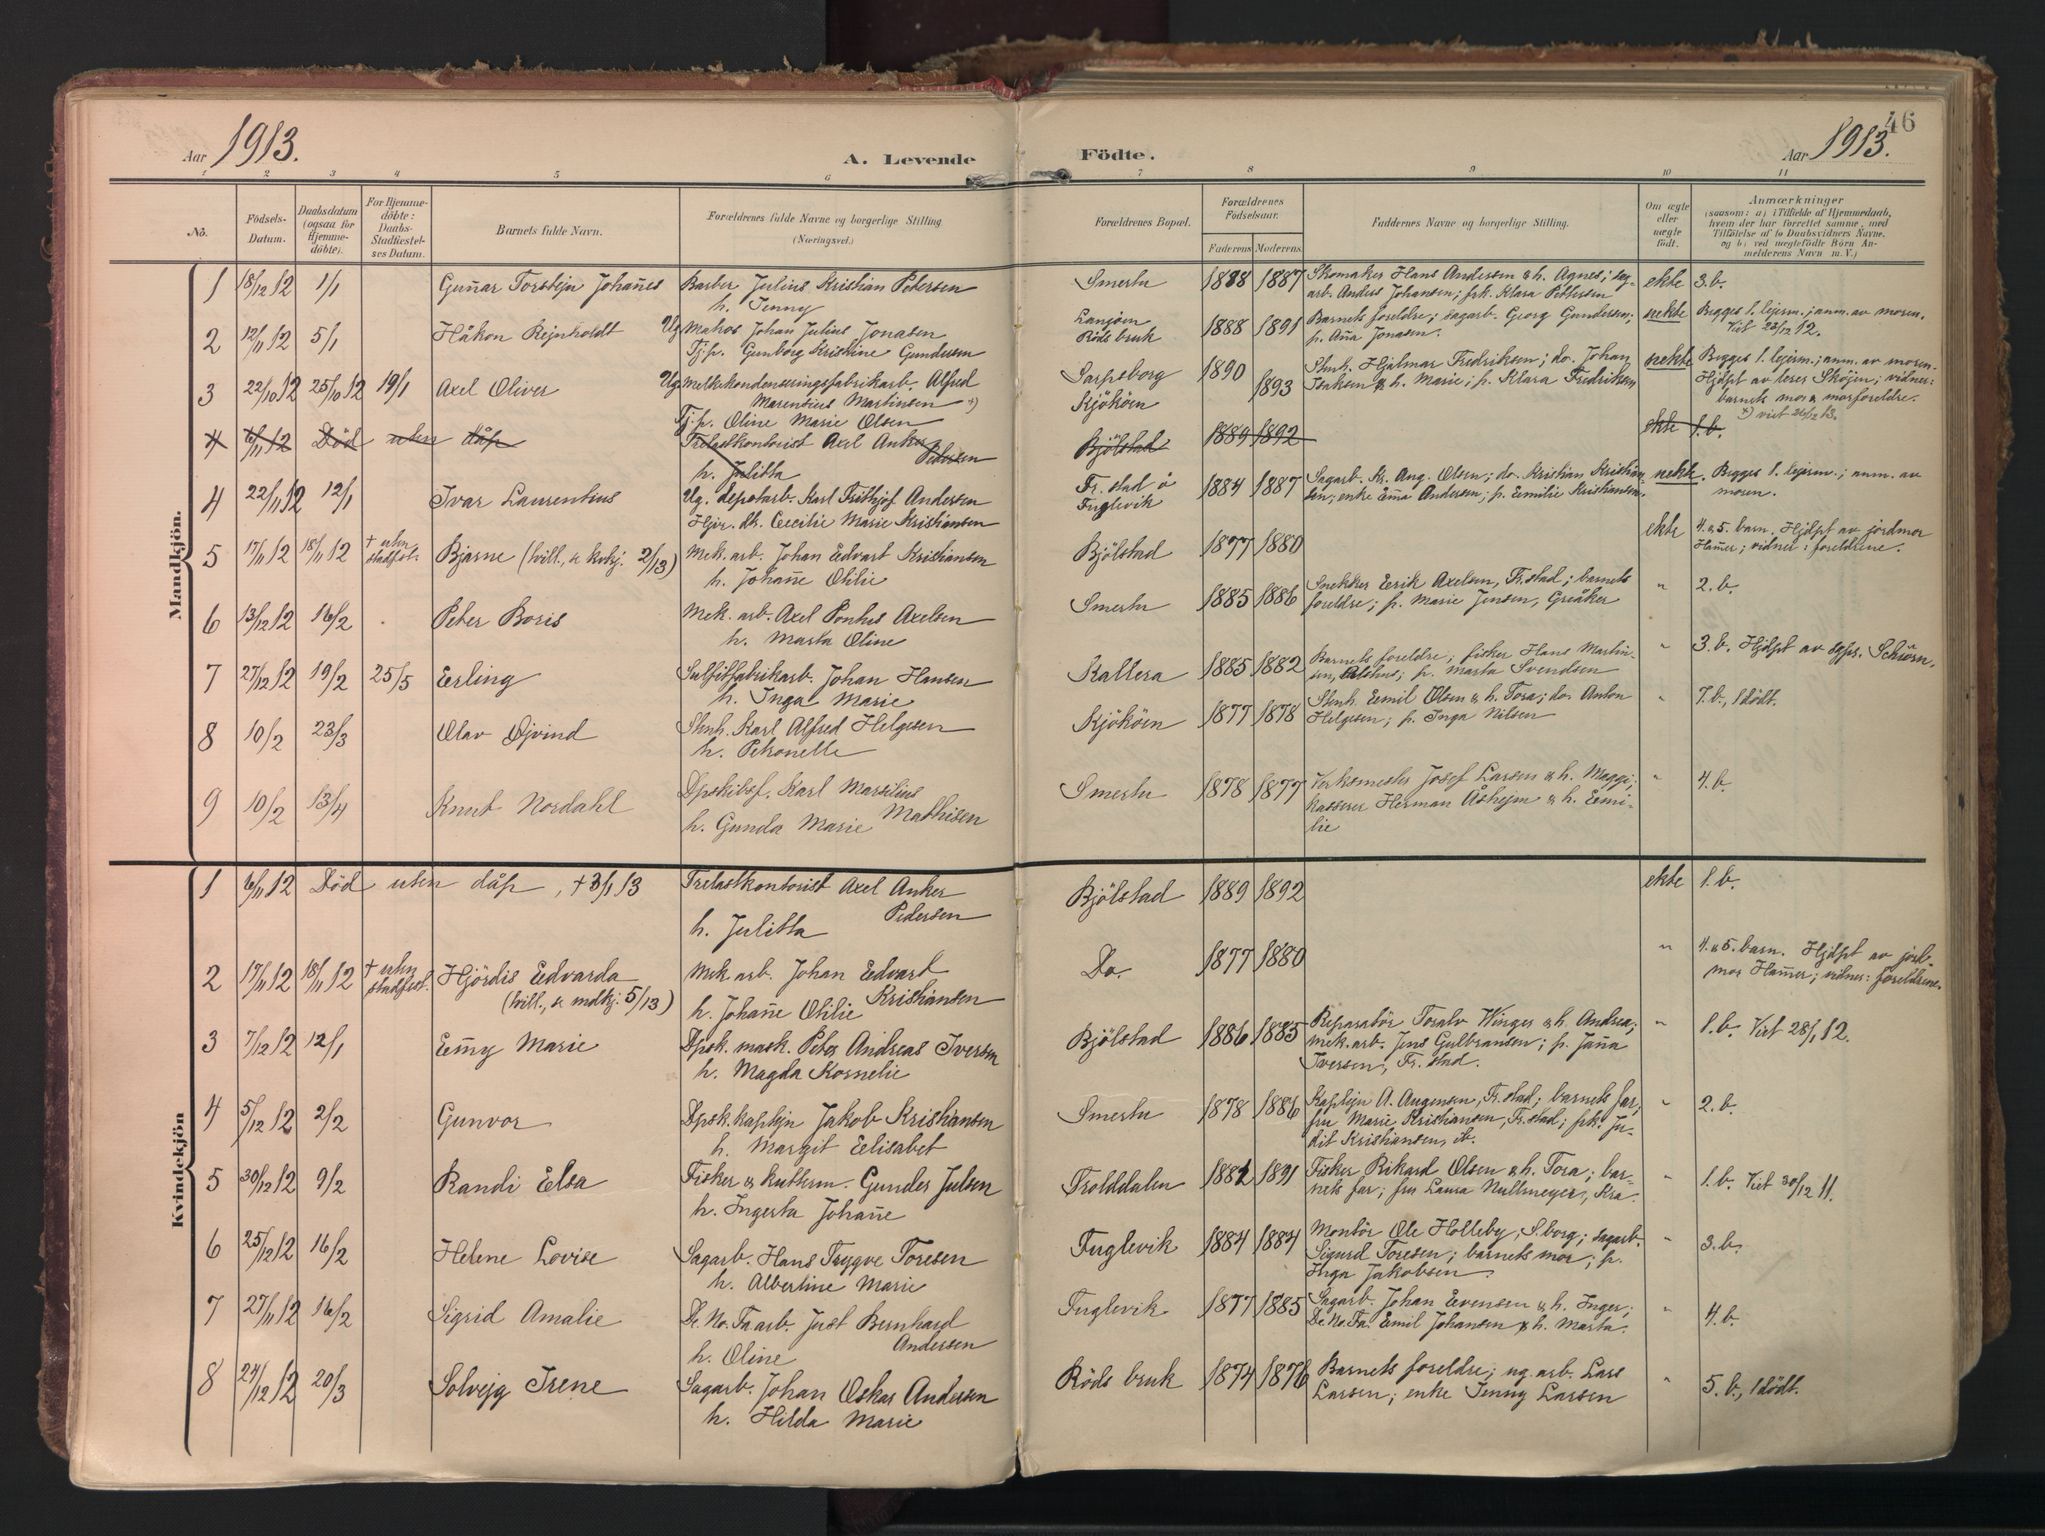 46
Aar 1913.
A. Levende Födte.
Aar 1913.
1 2 3 4 5 6 7 8 9 10 11
No.
Födsels-Datum.
Daabsdatum (ogsaa for Hjemmedöbte).
For Hjemmedöbte: Daabs-Stadfæstelses Datum.
Barnets fulde Navn.
Forældrenes fulde Navne og borgerlige Stilling. (Næringsvei.)
Forældrenes Bopæl.
Forældrenes Födselsaar. Faderens Moderens
Faddernes Navne og borgerlige Stilling.
Om ægte eller uægte födt.
Anmærkninger (saasom: a) i Tilfælde af Hjemmedaab, hvem der har forrettet samme, med Tilföielse af to Daabsvidners Navne, og b) ved uægtefödte Börn Anmelderens Navn m. V.)
Mandkjön.
1 18/12 12 1/1 Gun̄ar Torstejn Johan̄es Barber Julius Kristian Petersen h. Jenny Smertu 1888 1887 Skomaker Hans Andersen & h. Agnes; sag-arb. Anders Johansen; frk. Klara Pettersen ekte 3. b.
2 12/11 12 5/1 Håkon Rejnholdt Ug. Matros Johan Julius Jonasen Tj. p. Gunborg Kristine Gundersen Röds bruk 1888 1891 Barnets foreldre; sagarb. Georg Gundersen; p. An̄a Jonasen. uekte Begges 1. lejerm.; anm. av moren. Viet 23/12 12.
3 22/10 12 25/10 12 19/1 Axel Oliver Ug. Melkekondenseringsfabrikarb. Alfred Marentius Martinsen +) Tj. p. Oline Marie Olsen Sarpsborg Kjököen 1890 1893 Stenh. Hjalmar Fredriksen; do. Johan Isaksen & h. Marie; p. Klara Fredriksen uekte Begges 1. lejerm.; anm. av moren. Hjdpt av lerer Sköjen; vidner: barnets mor & morforeldre. +) viet 26/12 13.
4 6/11 12 Död uten dåp Trelastkontorist Axel Anker Pedersen h. Julitta Bjölstad 1889 1892 ekte 1. b.
4 22/11 12 12/1 Ivar Laurentius Ug. depotarb. Karl Fritjof Andersen Hjv. dtr. Cecilie Marie Kristiansen Fr. stad ö Fuglevik 1884 1887 Sagarb. Kr. Aug. Olsen; do. Kristian Kristiansen; enke Em̄a Andersen; p. Emilie Kristiansen. uekte. Begges 1. lejerm.; anm. av moren.
5 17/11 12 18/11 12 + uten stadfest. Bjarne (tvill., se kvkj. 2/13) Mek. arb. Johan Edvart Kristiansen h. Johan̄e Otilie Bjölstad 1877 1880 ekte 4. & 5. barn. Hjdpt av jordmor Ham̄er; vidner: foreldrene.
6 13/12 12 16/2 Peter Boris Mek. arb. Axel Pontus Axelsen h. Marta Oline Smertu 1885 1886 Snekker Eerik Axelsen, Fr.stad; barnets foreldre; p. Marie Jensen, Greåker " 2. b.
7 27/12 12 19/2 25/5 Eerling Sulfitfabrikarb. Johan Hansen h. Inga Marie Kallera 1885 1882 Barnets foreldre; fisker Hans Martinsen, p. Marta Svendsen " 3. b. Hjdpt av sgpr. Schiörn.
8 10/2 23/3 Olav Öjvind Stenh. Karl Alfred Helgesen h. Petronelle Kjököen 1877 1878 Stenh. Eemil Olsen & h. Tora; do. Anton Helgesen; p. Inga Nilsen " 7. b., 1 dödt.
9 10/2 13/4 Knut Nordahl Dpskibsf. Karl Marsilius Mathisen h. Gunda Marie Smertu 1878 1877 Verksmester Josef Larsen & h. Maggi; kasserer Herman Åshejm & h. Eemilie " 4. b.
Kvindekjön
1 6/11 12 Död uten dåp, + 3/1 13 Trelastkontorist Axel Anker Pedersen h. Julitta Bjölstad 1889 1892 ekte 1. b.
2 17/11 12 18/11 12 + uten stadfest. Hjördis Eedvarda (tvill., se mdkj. 5/13) Mek arb. Johan Eedvart Kristiansen h. Johan̄e Otilie Do 1877 1880 " 4. & 5. barn. Hjdpt av jordmor Ham̄er; vidner: foreldrene.
3 7/12 12 12/1 Eem̄y Marie Dpsk. mask. Peter Andreas Iversen h. Magda Kornelie Bjölstad 1886 1885 Reparatör Toralv Winger & h. Andrea; mek. arb. Jens Gulbransen; p. Jan̄a Iversen, Fr. stad. " 1. b. Viet 28/1 12.
4 5/12 12 2/2 Gunvor Dpsk. kaptejn Jakob Kristiansen h. Margit Eelisabet Smertu 1878 1886 Kaptejn A. Augensen, Fr. stad; barnets far; fru Marie Kristiansen, Fr. stad; frk. Judit Kristiansen, ib. " 2. b.
5 30/12 12 9/2 Randi Elsa Fisker & kutterm. Gunder Julsen h. Ingerta Johan̄e Trolddalen 1882 1891 Fisker Rikard Olsen & h. Tora; barnets far; fru Laura Nullmeyer, Kra. " 1. b. Viet 30/12 11.
6 25/12 12 16/2 Helene Lovise Sagarb. Hans Trygve Toresen h. Albertine Marie Fuglevik 1884 1884 Montör Ole Holleby, S.borg; sagarb. Sigurd Toresen; barnets mor; p. Inga Jakobsen. " 3. b.
7 27/11 12 16/2 Sigrid Amalie De. No. Fa. arb. Just Bernhard Andersen h. Oline Fuglevik 1877 1885 Sagarb. Johan Evensen & h. Inger; De. No. Fa. Emil Johansen & h. Marta. " 4. b.
8 24/12 12 20/3 Solvejg Irene Sagarb. Johan Oskar Andersen h. Hilda Marie Röds bruk 1874 1876 Barnets foreldre; ug. arb. Lars Larsen; enke Jenny Larsen " 5. b., 1 dödt.